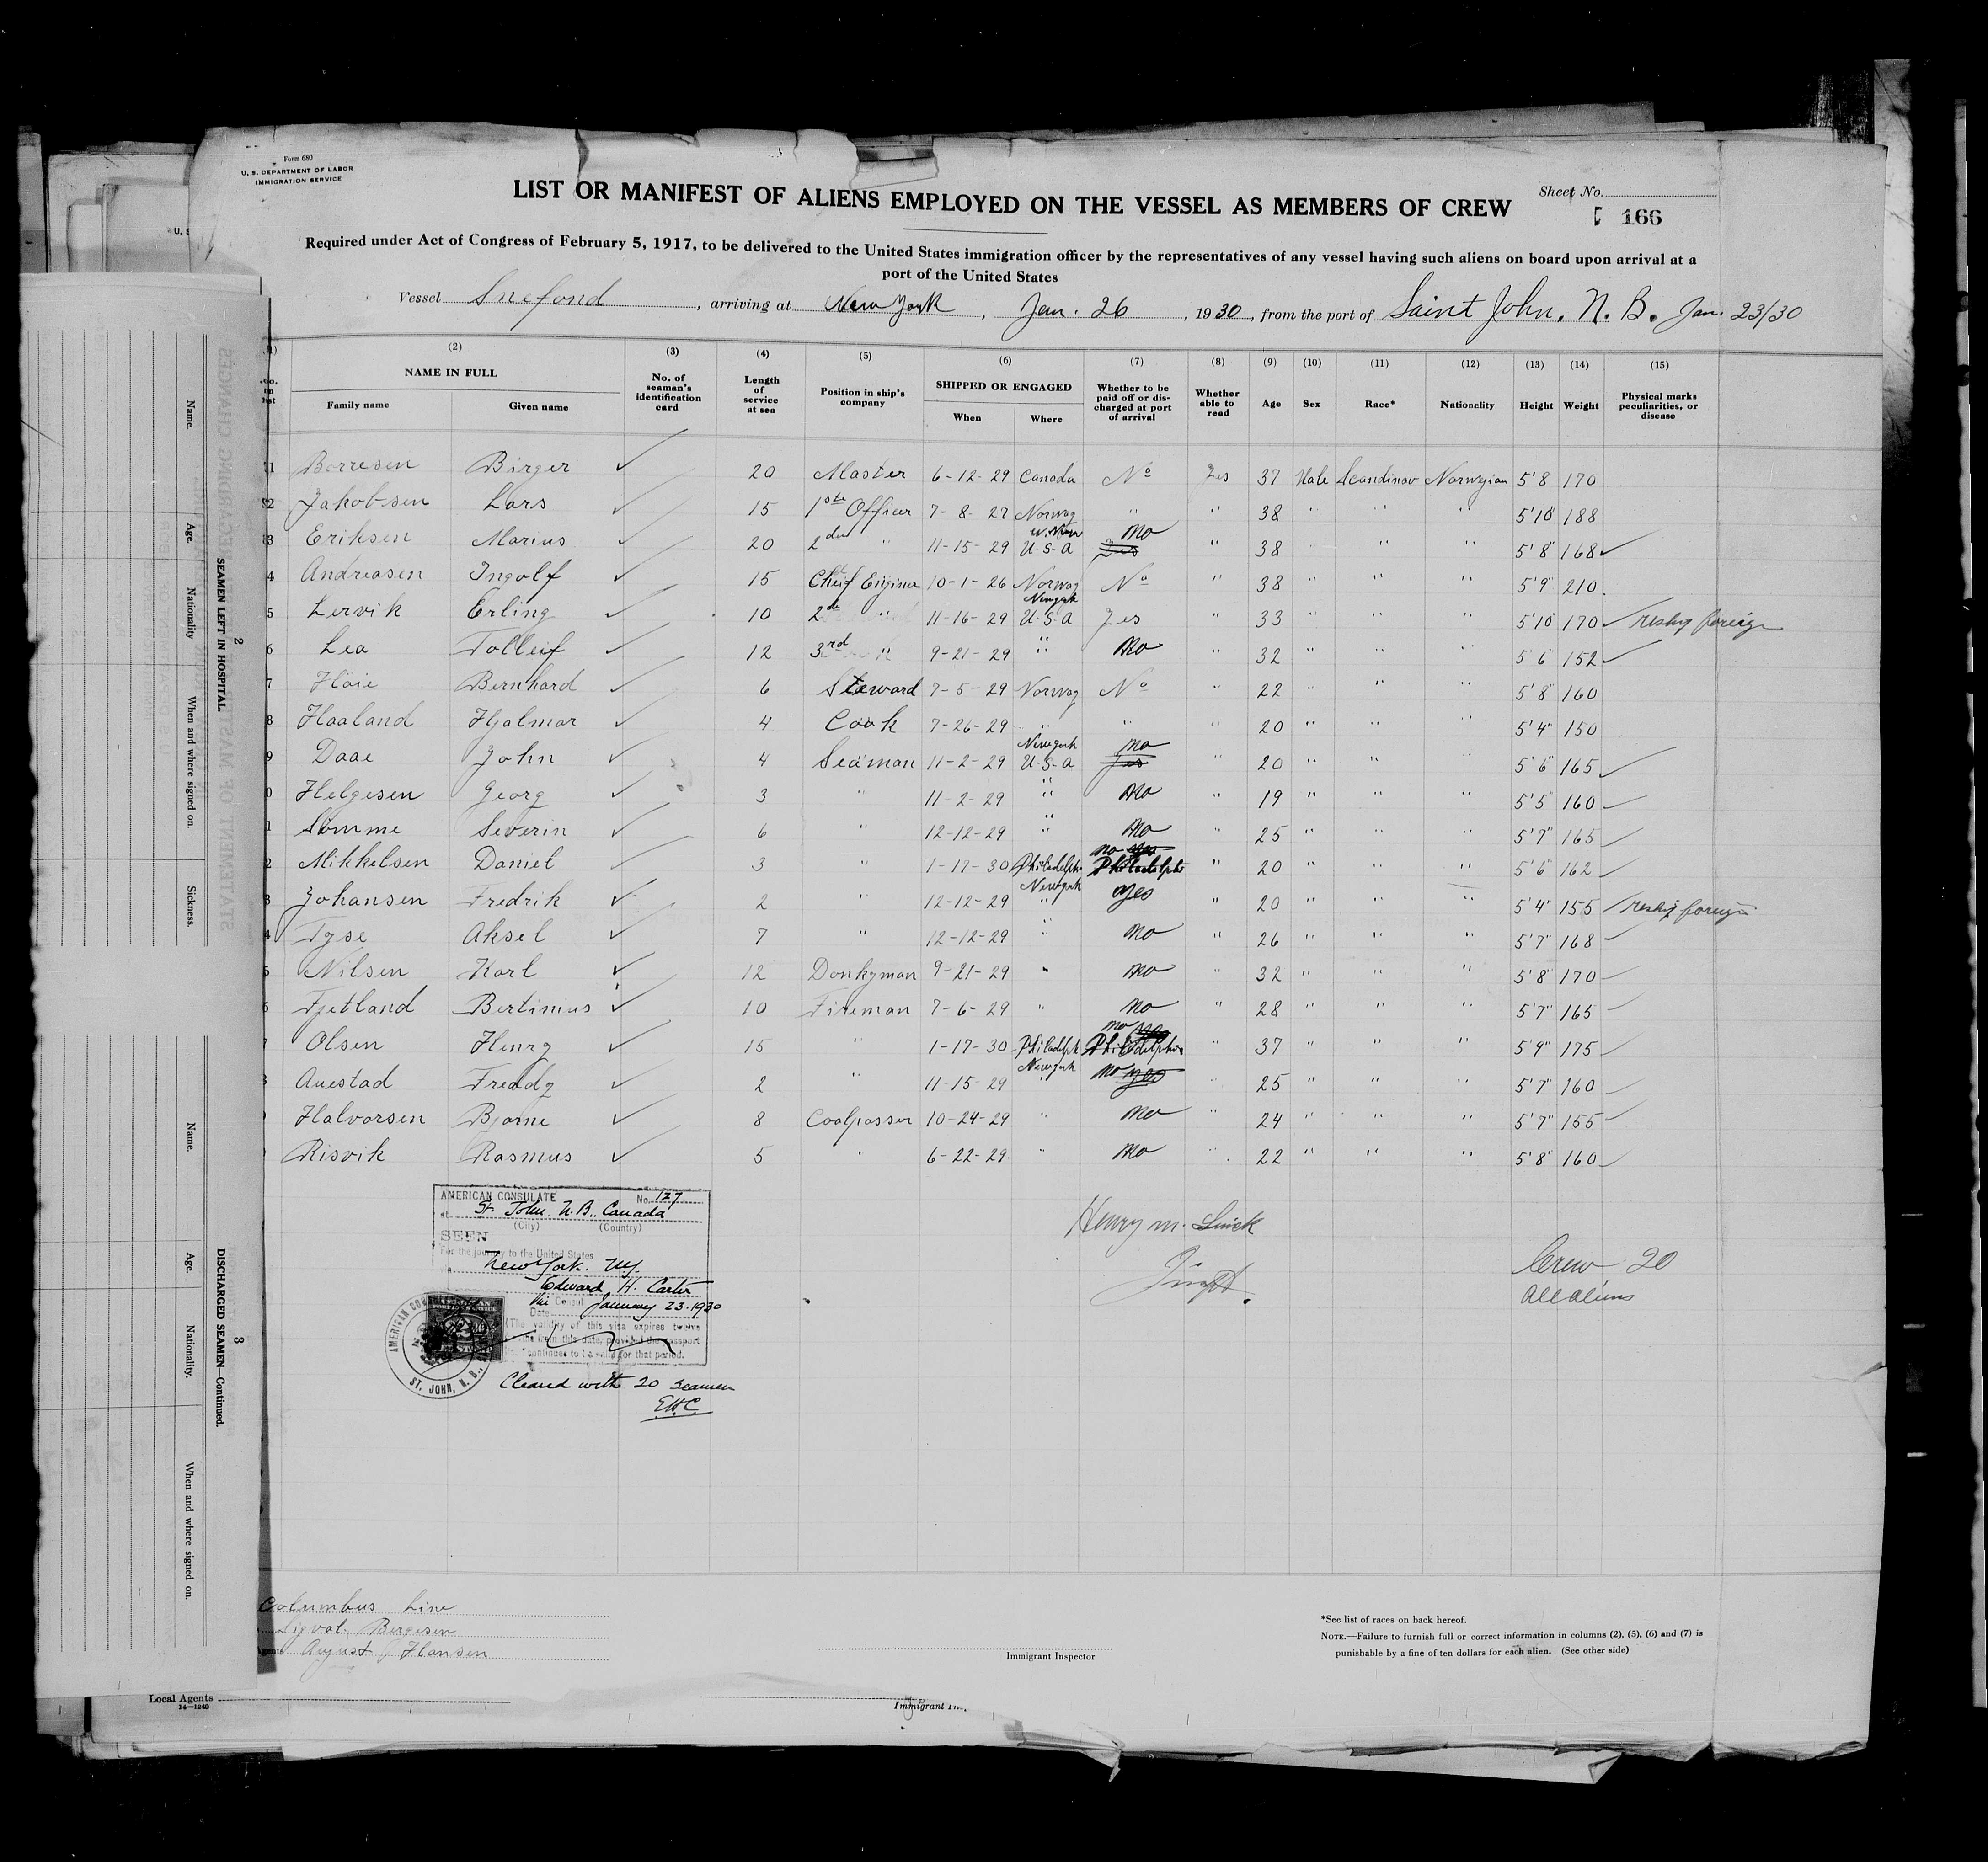 Form 680
U. S. DEPARTMENT OF LABOR
IMMIGRATION SERVICE
LIST OR MANIFEST OF ALIENS EMPLOYED ON THE VESSEL AS MEMBERS OF CREW
Sheet No.
166
Required under Act of Congress of February 5, 1917, to be delivered to the United States immigration officer by the representatives of any vessel having such aliens on board upon arrival at a
port of the United States
Vessel Snefond, arriving at New York, Jan. 26, 1930, from the port of Saint John. N. B. Jan. 23/30
(2) (3) (4) (5) (6) (7) (8) (9) (10) (11) (12) (13) (14) (15)
NAME IN FULL Family name Given name No. of seaman's identification card Length of service at sea Position in ship's company SHIPPED OR ENGAGED When Where Whether to be paid off or discharged at port of arrival Whether able to read Age Sex Race* Nationality Height Weight Physical marks peculiarities, or disease
1 Borresen Birger ✓ 20 Master 6-12-29 Canada No Yes 37 Male Scandinav Norwegian 5'8 170
2 Jakobsen Lars ✓ 15 1ste Officer 7-8-27 Norway " " 38 " " " 5'10 188
3 Eriksen Marius ✓ 20 2den " 11-15-29 U.S.A No Yes " 38 " " " 5'8" 168 ✓
4 Andreasen Ingolf ✓ 15 Cheif Enginer 10-1-26 Norway No " 38 " " " 5'9" 210
5 Lervik Erling ✓ 10 2de " 11-16-29 Newyork U.S.A Yes " 33 " " " 5'10 170 ✓ reship foreign
6 Lea Tolleif ✓ 12 3rd " 9-21-29 " No " 32 " " " 5'6 152 ✓
7 Höie Bernhard ✓ 6 Steward 7-5-29 Norway No " 22 " " " 5'8" 160
8 Haaland Hjalmar ✓ 4 Cook 7-26-29 " " " 20 " " " 5'4" 150
9 Daae John ✓ 4 Seaman 11-2-29 Newyork U.S.A No Yes " 20 " " " 5'6" 165 ✓
0 Helgesen Georg ✓ 3 " 11-2-29 " No " 19 " " " 5'5" 160 ✓
1 Sömme Severin ✓ 6 " 12-12-29 " No " 25 " " " 5'7" 165 ✓
2 Mikkelsen Daniel ✓ 3 " 1-17-30 Philadelph No Yes Philadelphi " 20 " " " 5'6" 162 ✓
3 Johansen Fredrik ✓ 2 " 12-12-29 Newyork " yes " 20 " " " 5'4" 155 ✓ reship foreign
4 Tyse Aksel ✓ 7 " 12-12-29 " No " 26 " " " 5'7" 168 ✓
5 Nilsen Karl ✓ 12 Donkyman 9-21-29 " No " 32 " " " 5'8" 170 ✓
6 Fjetland Bertinius ✓ 10 Fireman 7-6-29 " No " 28 " " " 5'7" 165 ✓
7 Olsen Henry ✓ 15 " 1-17-30 Philadelph No Yes Philadelphia " 37 " " " 5'9" 175 ✓
8 Auestad Freddy ✓ 2 " 11-15-29 Newyork No yes " 25 " " " 5'7" 160 ✓
Halvorsen Bjarne ✓ 8 Coalpasser 10-24-29 " No " 24 " " " 5'7" 155 ✓
Risvik Rasmus ✓ 5 " 6-22-29 " No " 22 " " " 5'8" 160 ✓
AMERICAN CONSULATE No. 127
at St. John. N.B., Canada
(City) (Country)
SEEN
For the journey to the United States
New York. NY.
Edward H. Carter
Vice Consul
Date January 23. 1930
(The validity of this visa expires twelve
months from this date, provided the passport
continues to be valid for that period.
ST. JOHN, N. B.,
Cleared with 20 seamen
EHC
Henry M.
Crew 20
All aliens
Columbus Line
Sigval Bergesen
August Hansen
Immigrant Inspector
*See list of races on back hereof.
NOTE.—Failure to furnish full or correct information in columns (2), (5), (6) and (7) is
punishable by a fine of ten dollars for each alien. (See other side)
Local Agents
14—1240
Immigrant In
STATEMENT OF MASTER REGARDING CHANGES
2
SEAMEN LEFT IN HOSPITAL
Name.
Age.
Nationality
When and where signed on.
Sickness.
3
DISCHARGED SEAMEN—Continued.
Name.
Age.
Nationality.
When and where signed on.